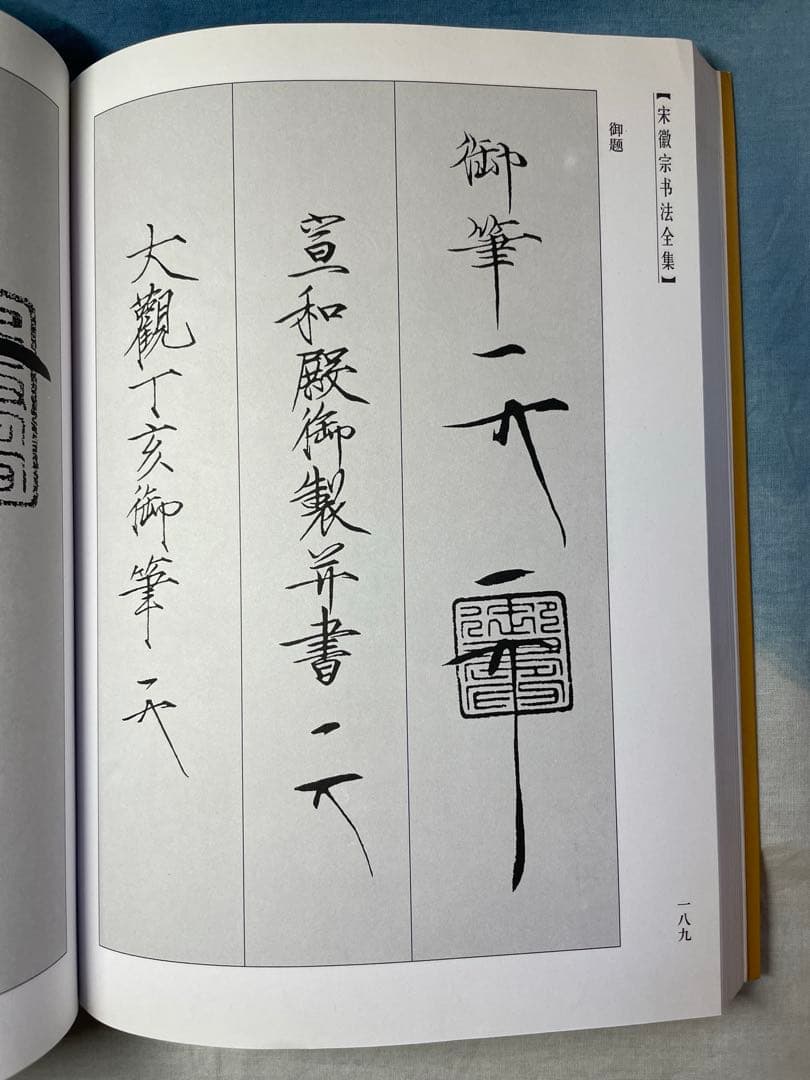 【宋徽宗书法全集】
御题
御筆
宣和殿御製并書
大觀丁亥御筆
一八九